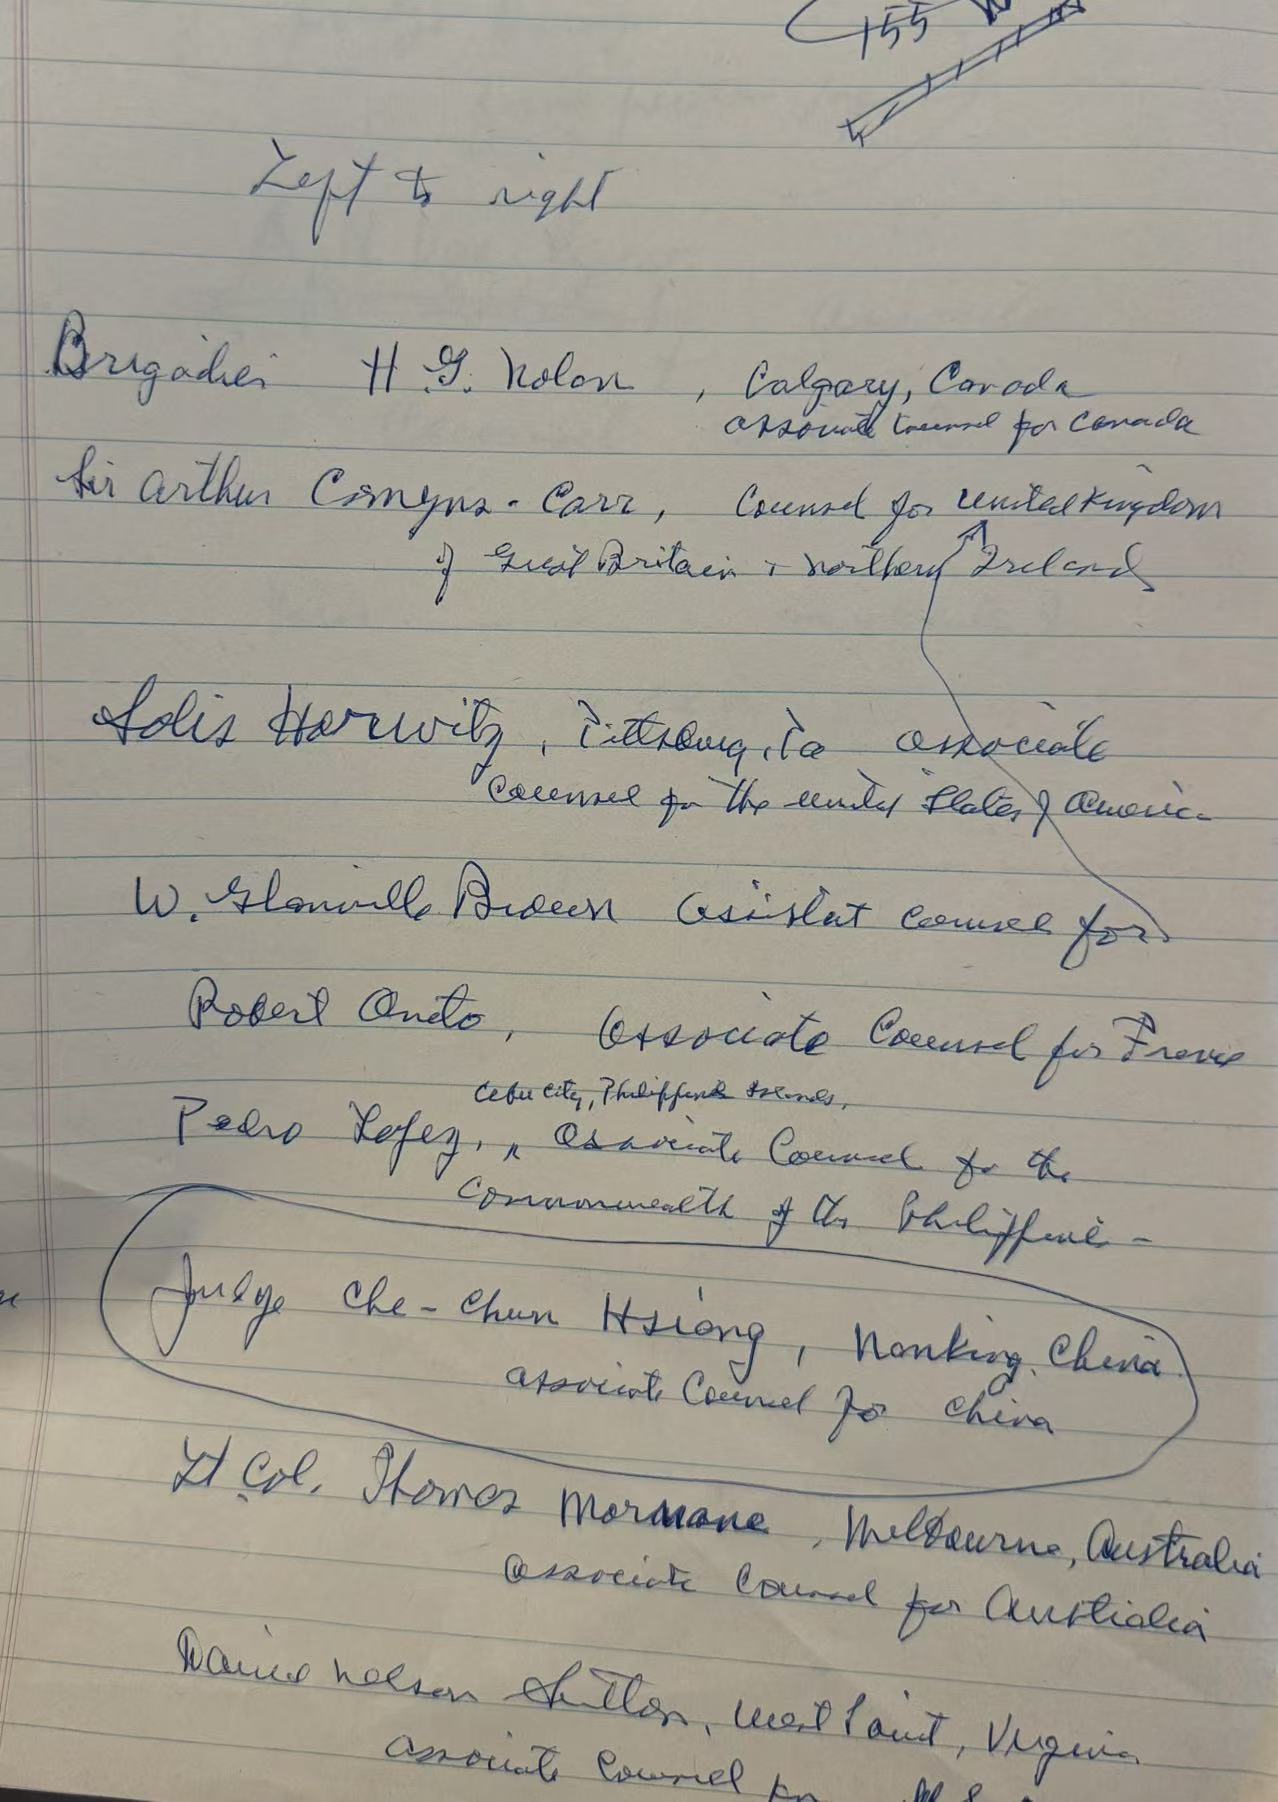 155
Left to right
Brigadier H. G. Nolan, Calgary, Canada
associate Counsel for Canada
Sir Arthur Comyns-Carr, Counsel for United Kingdom
of Great Britain + Northern Ireland
Solis Horwitz, Pittsburg, Pa associate
counsel for the United States of America
W. Glanville Brown assistat counsel for
Robert Oneto, Associate Counsel for France
Cebu City, Philippine Islands,
Pedro Lopez, Associate Counsel for the
Commonwealth of the Philippine
Judge Che-Chun Hsiang, Nanking, China
associate Counsel for China
Lt Col. Thomas Mornane, Melbourne, Australia
associate Counsel for Australia
David Nelson Sutton, West Point, Virginia
associate Counsel for